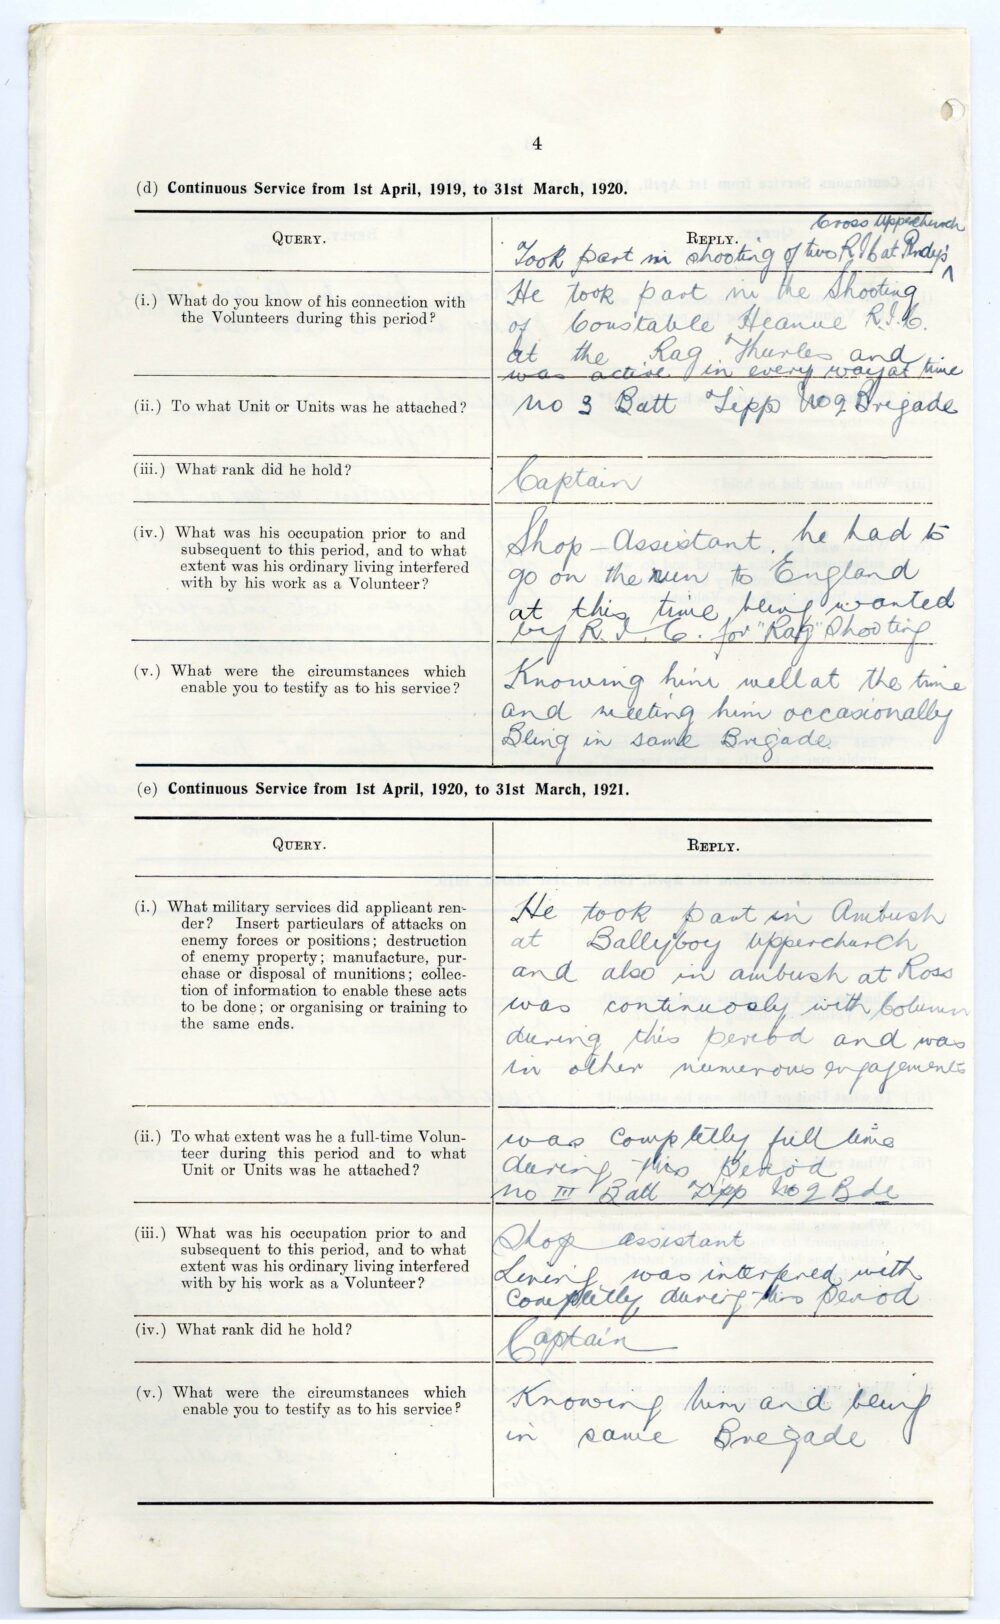 4
(d) Continuous Service from 1st April, 1919, to 31st March, 1920.
QUERY.
REPLY.
Cross Upperchurch
Took part in shooting of two R.I.C at
(i.) What do you know of his connection with
the Volunteers during this period?
He took part in the Shooting
of Constable Heanue R.I.C.
at the Rag Thurles and
was active in every way at time
(ii.) To what Unit or Units was he attached?
No 3 Batt Tipp No 2 Brigade
(iii.) What rank did he hold?
Captain
(iv.) What was his occupation prior to and
subsequent to this period, and to what
extent was his ordinary living interfered
with by his work as a Volunteer?
Shop-Assistant, he had to
go on the run to England
at this time being wanted
by R.I.C. for "Rag" Shooting
(v.) What were the circumstances which
enable you to testify as to his service?
Knowing him well at the time
and meeting him occasionally
Being in same Brigade
(e) Continuous Service from 1st April, 1920, to 31st March, 1921.
QUERY.
REPLY.
(i.) What military services did applicant ren-
der? Insert particulars of attacks on
enemy forces or positions; destruction
of enemy property; manufacture, pur-
chase or disposal of munitions; collec-
tion of information to enable these acts
to be done; or organising or training to
the same ends.
He took part in Ambush
at Ballyboy Upperchurch
and also in ambush at Ross
was continuosly with Column
during this period and was
in other numerous engagements
(ii.) To what extent was he a full-time Volun-
teer during this period and to what
Unit or Units was he attached?
was completly full time
during this period
No III Batt Tipp No 2 Bde
(iii.) What was his occupation prior to and
subsequent to this period, and to what
extent was his ordinary living interfered
with by his work as a Volunteer?
Shop assistant
Living was interfered with
completly during this period
(iv.) What rank did he hold?
Captain
(v.) What were the circumstances which
enable you to testify as to his service?
Knowing him and being
in same Brigade